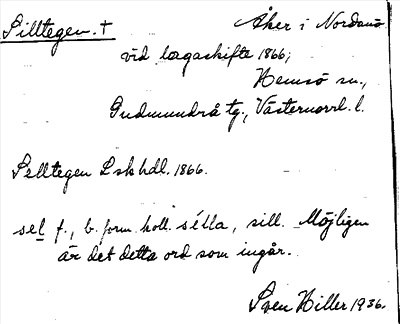 Silltegen. † Åker i Nordanö
vid lagaskifte 1866;
Hemsö sn.,
Gudmundrå tg., Västernorrl. l.
Selltegen Lskhdl. 1866.
sel f., b. form koll. sélla, sill. Möjligen
är det detta ord som ingår.
Sven Hiller 1936.